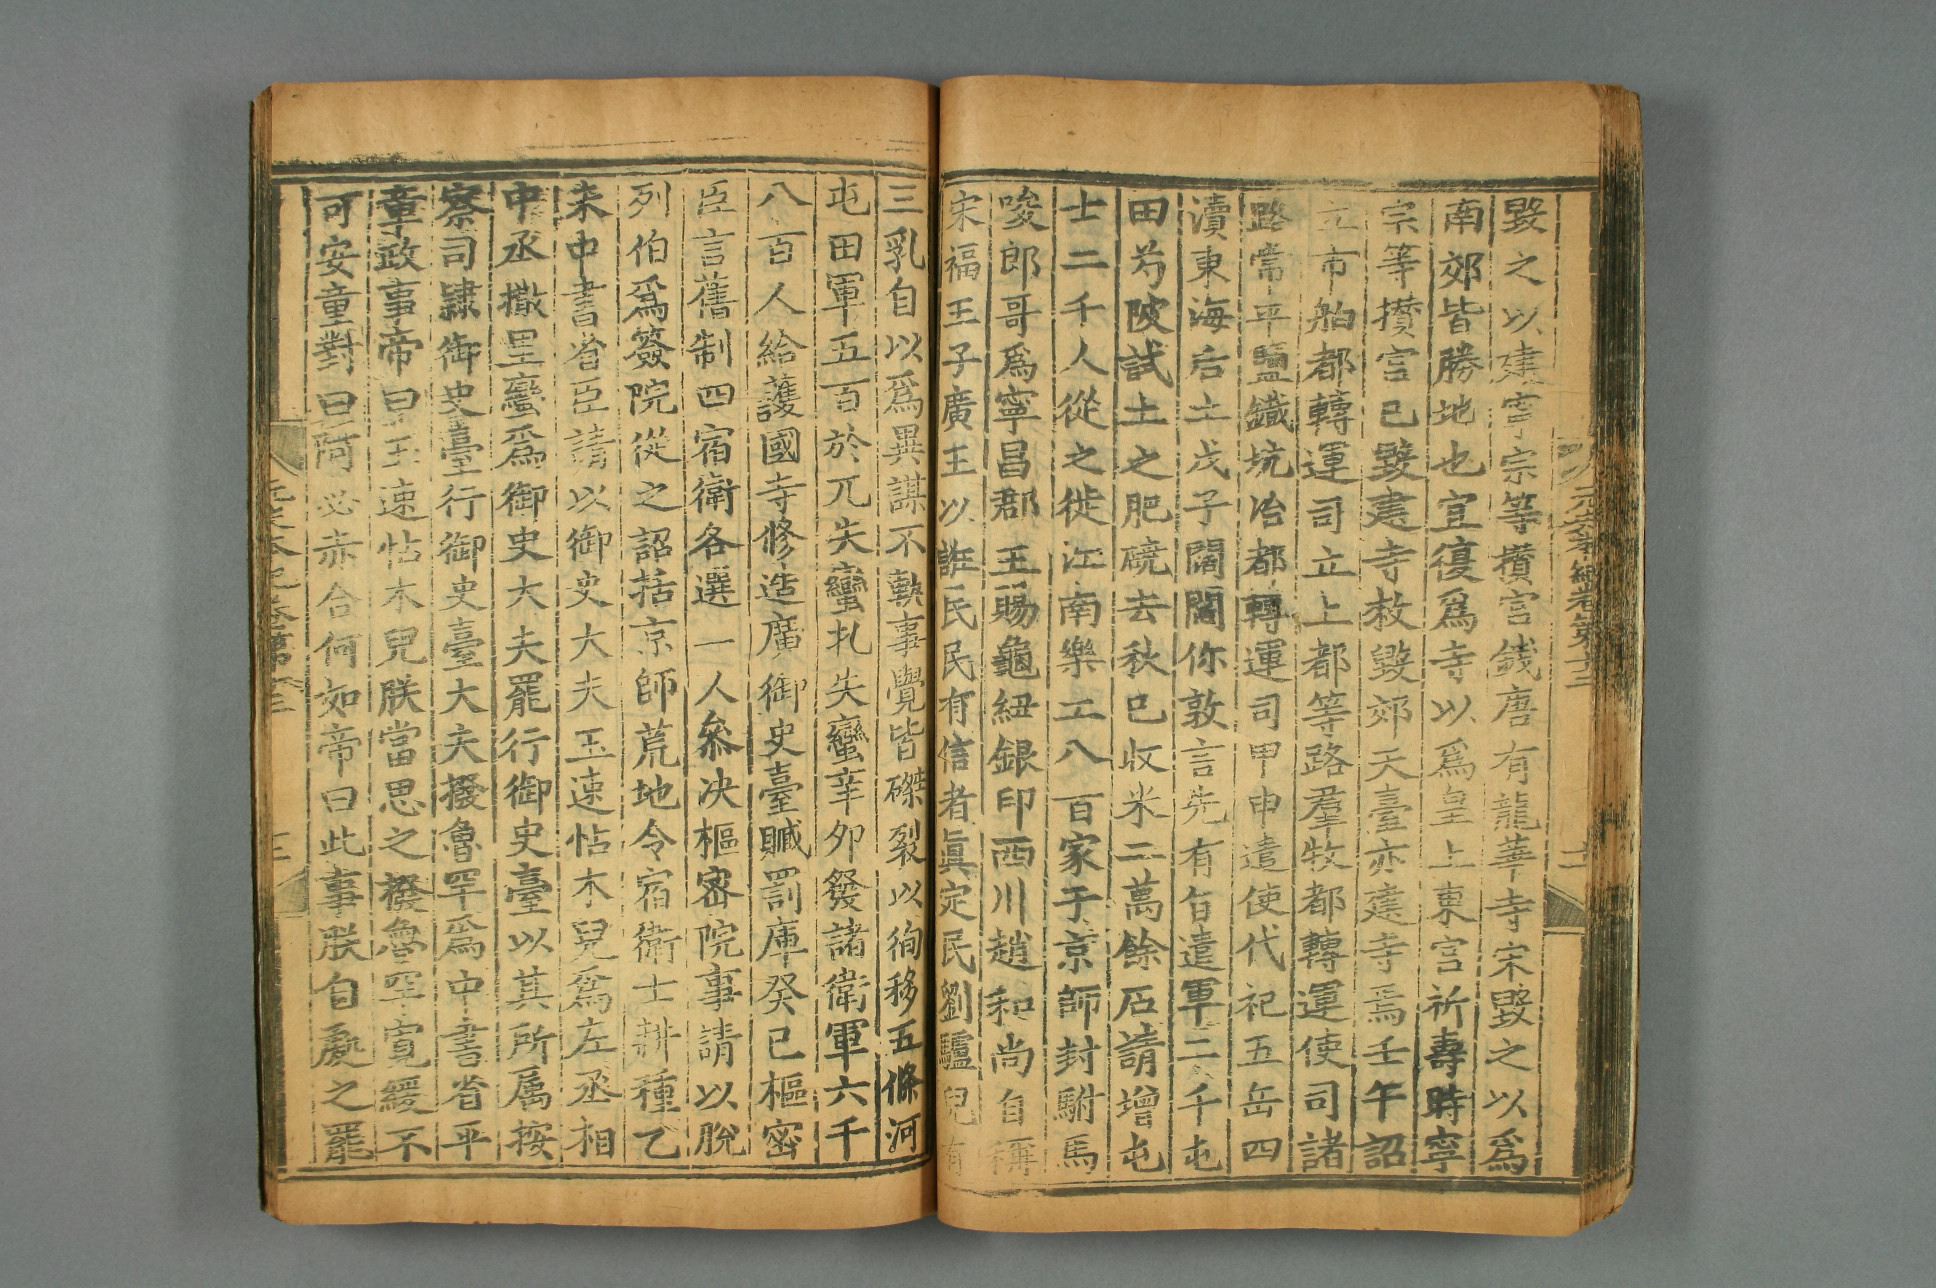 毀之以建寧宗等攢宮錢唐有龍華寺宋毀之以爲
南郊皆勝地也宜復爲寺以爲皇上東宮祈壽時寧
宗等攢宮已毀建寺敕毀郊天臺亦建寺焉壬午詔
立市舶都轉運司立上都等路羣牧都轉運使司諸
路常平鹽鐵坑冶都轉運司甲申遣使代祀五岳四
瀆東海后土戊子闊闊你敦言先有旨遣軍二千屯
田芍陂試土之肥磽去秋已收米二萬餘石請增屯
士二千人從之徙江南樂工八百家于京師封駙馬
唆郎哥爲寧昌郡王賜龜紐銀印西川趙和尚自稱
宋福王子廣王以誑民民有信者眞定民劉驢兒有
三乳自以爲異謀不軌事覺皆磔裂以徇移五條河
屯田軍五百於兀失蠻扎失蠻辛卯發諸衛軍六千
八百人給護國寺修造廣御史臺贓罰庫癸巳樞密
臣言舊制四宿衛各選一人叅决樞密院事請以脫
列伯爲簽院從之詔括京師荒地令宿衛士耕種乙
未中書省臣請以御史大夫玉速帖木兒爲左丞相
中丞撒里蠻爲御史大夫罷行御史臺以其所屬按
察司隷御史臺行御史臺大夫撥魯罕爲中書省平
章政事帝曰玉速帖木兒朕當思之撥魯罕寛緩不
可安童對曰阿必赤合何如帝曰此事朕自處之罷